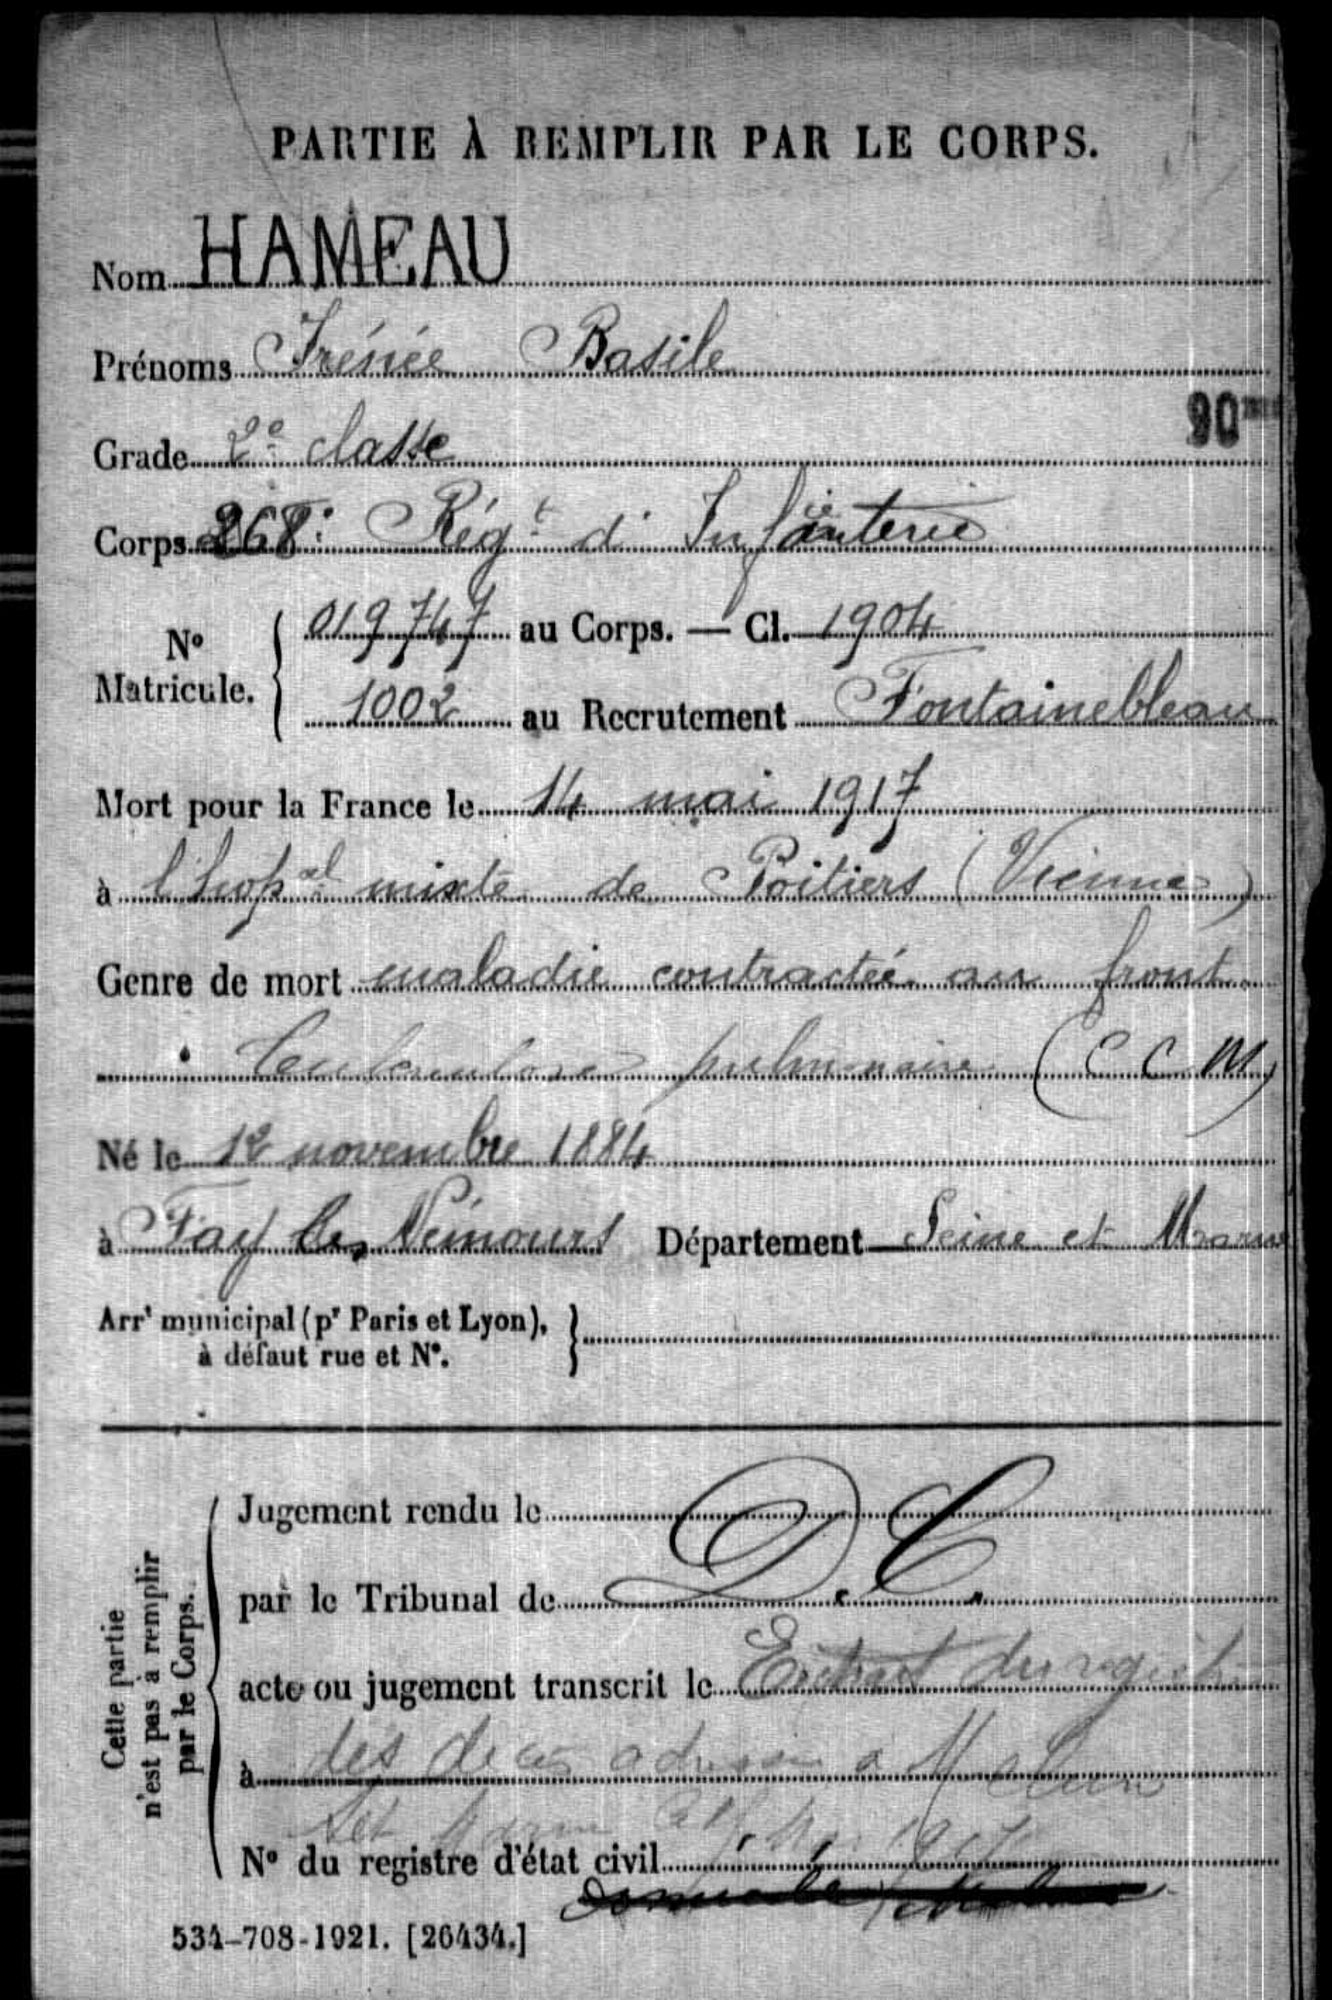 PARTIE À REMPLIR PAR LE CORPS.
Nom HAMEAU
Prénoms Irénée Basile
90
Grade 2e classe
Corps 268e Régt d'Infanterie
No Matricule. 019747 au Corps. — Cl. 1904
1002 au Recrutement Fontainebleau
Mort pour la France le 14 mai 1917
à l'hopal mixte de Poitiers (Vienne)
Genre de mort maladie contractée au front.
Tuberculose pulmonaire (C C M)
Né le 12 novembre 1884
à Fay les Nemours Département Seine et Marne
Arrt municipal (pr Paris et Lyon),
à défaut rue et No.
Cette partie
n'est pas à remplir
par le Corps.
Jugement rendu le
par le Tribunal de D. C.
acte ou jugement transcrit le Extrait du registre
à des décès adressé a Melun
No du registre d'état civil 1917
534-708-1921. [26434.]